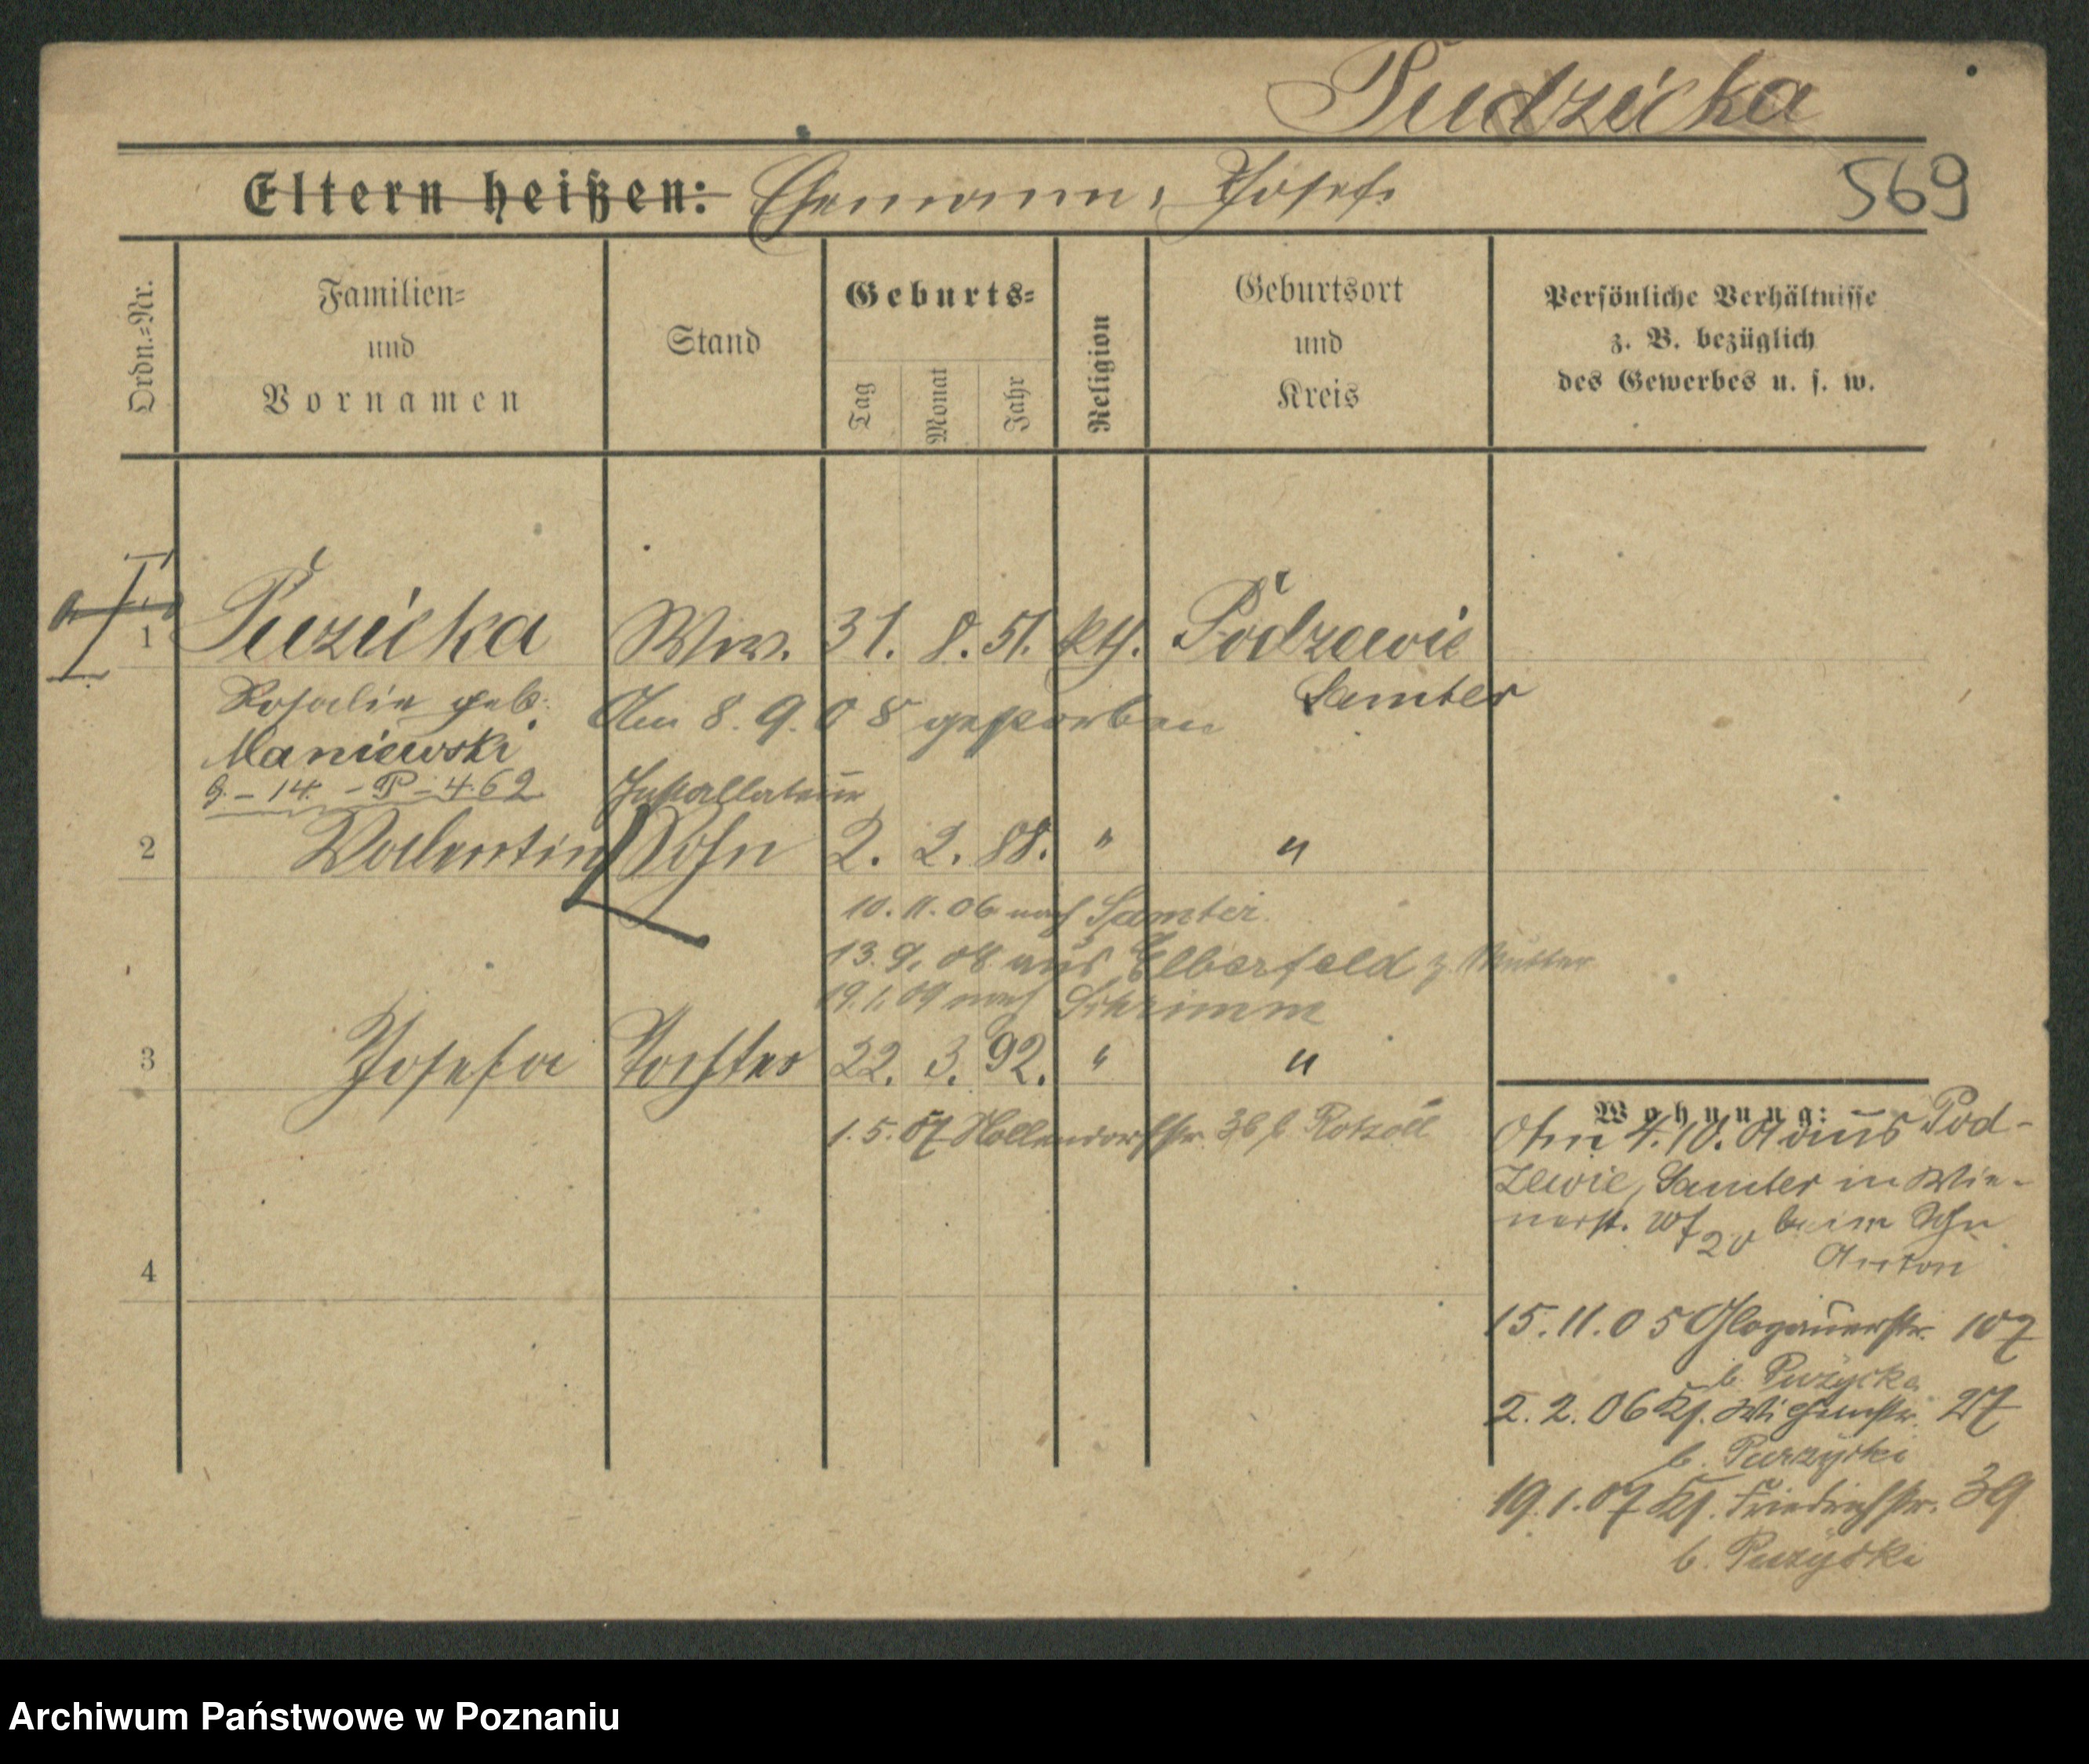 Pudzicka
Eltern heißen: Ehemann: Josef.
569
Ordn.=Nr.
Familien=
und
Vornamen
Stand
Geburts=
Tag
Monat
Jahr
Religion
Geburtsort
und
Kreis
Persönliche Verhältnisse
z. B. bezüglich
des Gewerbes u. s. w.
1 Puzicka Ww. 31. 8. 51. kth. Podzewie
Samter
Rosalie geb.
Am 8. 9. 08 gestorben
Maniewski
G. - 14. - P - 462
Installateur
2 Valentin Sohn 2. 2. 88. " "
10. 11. 06 nach Samter.
13. 9. 08 aus Elberfeld z. Mutter
19. 1. 09 nach Schrimm
3 Josefa Tochter 22. 3. 92. " "
1. 5. 07 Hollendorfstr. 36 b
4
Wohnung:
4. 10. 01 aus Pod-
zewie, Samter in Wie-
nerst. beim Sohn
Anton
15. 11. 05 Glogauerstr. 107
b. Puzycka
2. 2. 06 27
b. Purzycki
19. 1. 07 Kf. Friedrichstr. 39
b. Puzycki
Archiwum Państwowe w Poznaniu